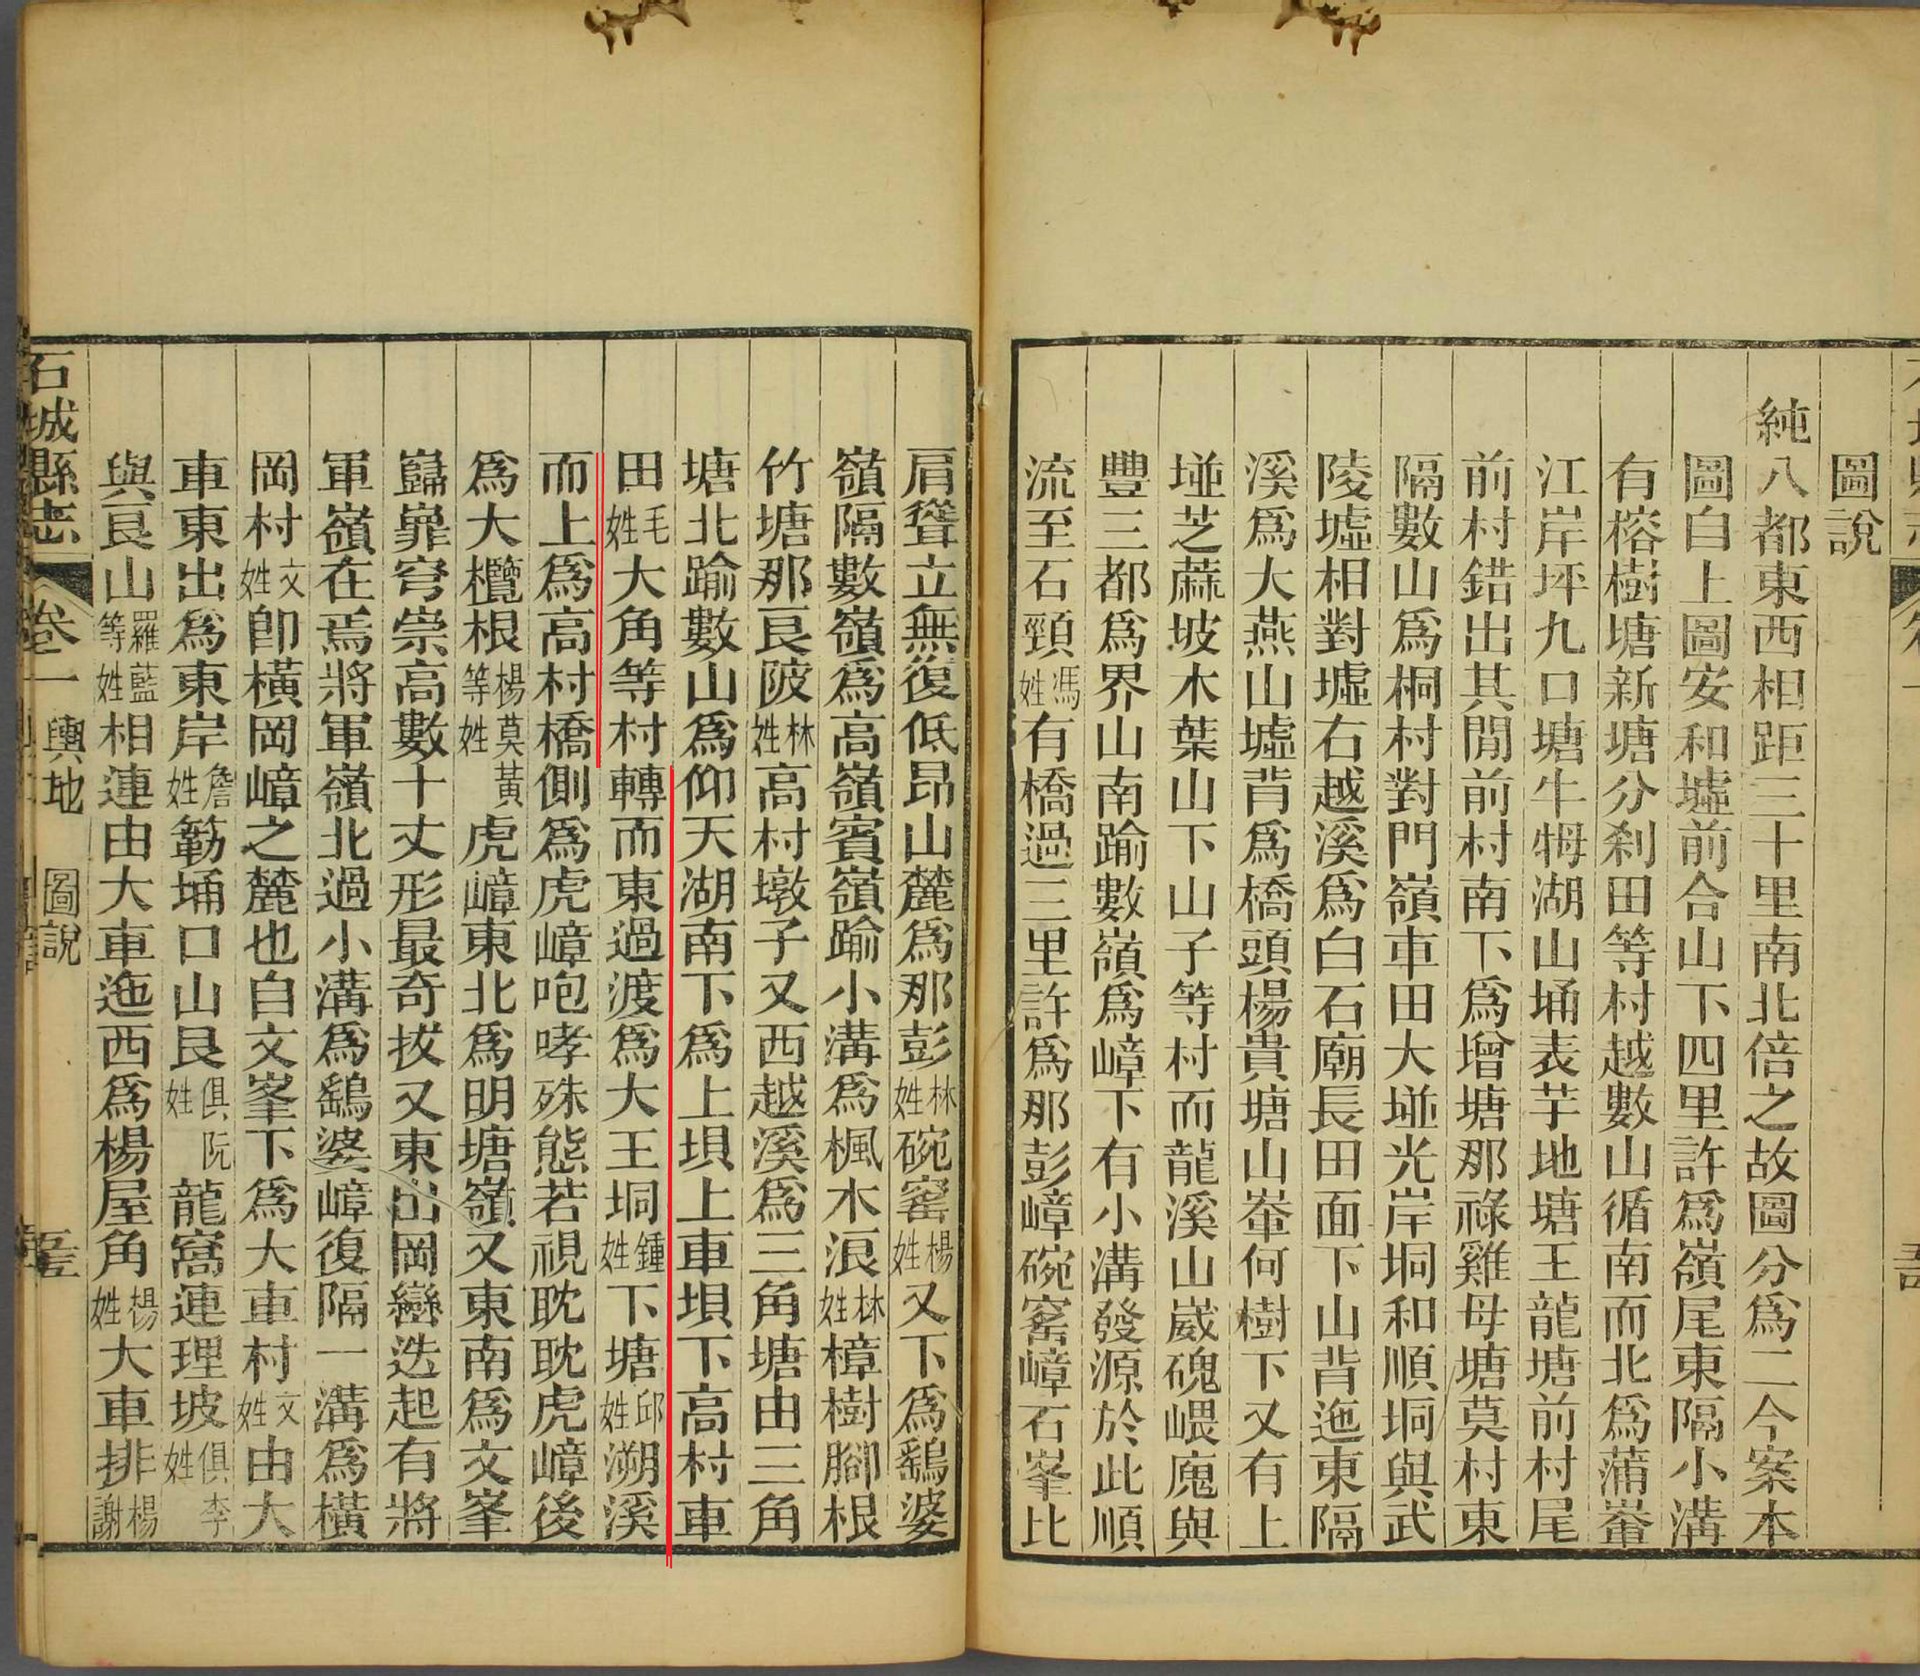 圖說
純八都東西相距三十里南北倍之故圖分爲二今案本
圖自上圖安和墟前合山下四里許爲嶺尾東隔小溝
有榕樹塘新塘分剎田等村越數山循南而北爲蒲輋
江岸坪九口塘牛牳湖山埇表芋地塘王龍塘前村尾
前村錯出其閒前村南下爲增塘那祿雞母塘莫村東
隔數山爲桐村村對門嶺車田大塸光岸垌和順垌與武
陵墟相對墟右越溪爲白石廟長田面下山背迤東隔
溪爲大燕山墟背爲橋頭楊貴塘山輋何樹下又有上
塸芝蔴坡木葉山下山子等村而龍溪山崴磈嵔廆與
豐三都爲界山南踰數嶺爲嶂下有小溝發源於此順
流至石頸馮姓有橋過三里許爲那彭嶂碗窰嶂石峯比
肩聳立無復低昂山麓爲那彭林姓碗窰楊姓又下爲鷂婆
嶺隔數嶺爲高嶺賓嶺踰小溝爲楓木浪林姓樟樹腳根
竹塘那良陂林姓高村墩子又西越溪爲三角塘由三角
塘北踰數山爲仰天湖南下爲上垻上車垻下高村車
田毛姓大角等村轉而東過渡爲大王垌鍾姓下塘邱姓溯溪
而上爲高村橋側爲虎嶂咆哮殊態若視眈眈虎嶂後
爲大欖根楊莫黃等姓虎嶂東北爲明塘嶺又東南爲文峯
巋嵂穹崇高數十丈形最奇拔又東出岡巒迭起有將
軍嶺在焉將軍嶺北過小溝爲鷂婆嶂復隔一溝爲橫
岡村文姓卽橫岡嶂之麓也自文峯下爲大車村文姓由大
車東出爲東岸詹姓簕埇口山艮俱阮姓龍窩連理坡俱李姓
與艮山羅藍等姓相連由大車迤西爲楊屋角楊姓大車排楊謝
石城縣志
卷一
輿地
圖說